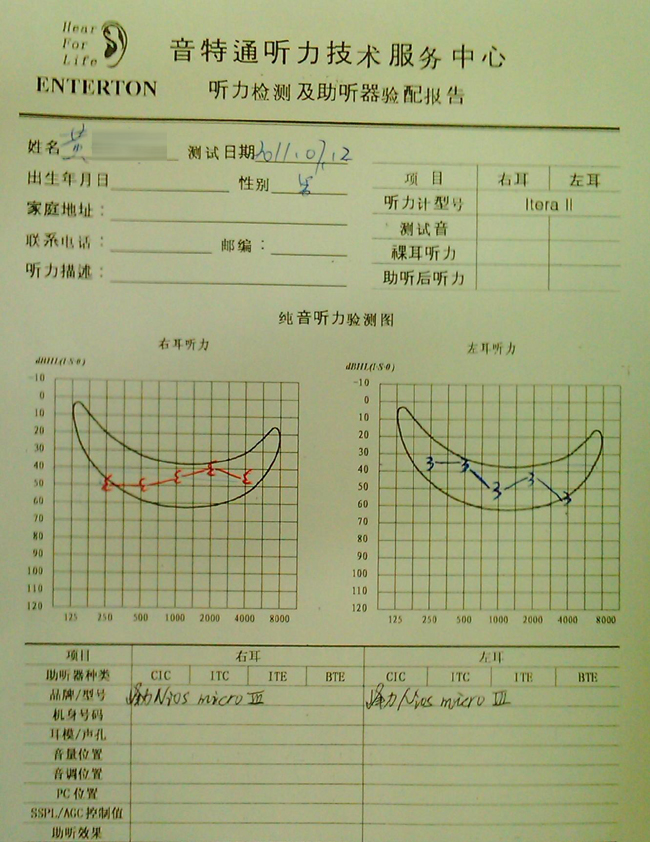 Hear
For
Life
ENTERTON
音特通听力技术服务中心
听力检测及助听器验配报告
姓名 黄 测试日期 2011.07.12
出生年月日 性别 男
家庭地址：
联系电话： 邮编：
听力描述：
项 目 右耳 左耳
听力计型号 Itera II
测试音
裸耳听力
助听后听力
纯音听力验测图
右耳听力
dBHL(I·S·0)
-10
0
10
20
30
40
50
60
70
80
90
100
110
120
125 250 500 1000 2000 4000 8000
左耳听力
dBHL(I·S·0)
-10
0
10
20
30
40
50
60
70
80
90
100
110
120
125 250 500 1000 2000 4000 8000
项目 右耳 左耳
助听器种类 CIC ITC ITE BTE CIC ITC ITE BTE
品牌/型号 峰力 Nios micro III 峰力 Nios micro III
机身号码
耳模/声孔
音量位置
音调位置
PC位置
SSPL/AGC控制值
助听效果